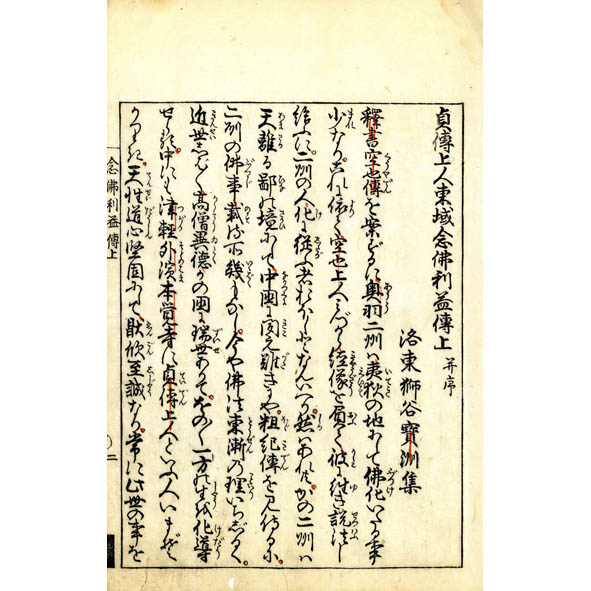 貞傳上人東域念佛利益傳上 并序
洛東獅谷寶洲集
釋書空也傳を案ずるに奥羽二州ハ夷狄の地にて佛化いたる事
少なり。これに依て空也上人みづから経像を負て彼に往き説法し
給ふに。二州の人化に従ふ者むかしとなんいへり。然ハあれど。かの二州ハ
天離る鄙の境にて。中国に聞え難きにや。粗紀傳を見侍るに。
二州の佛事載する所幾もなし。今や佛法東漸の理いちじるく。
近世しば〱高僧異徳かの国に瑞世ありて。をの〱一方の生を化導
せり。中にも津軽外濱本覚寺に貞傳上人といふ人いまぞ
かりき。天性道心堅固にて。欣至誠なり。常に此世の事を
念佛利益傳上
〇二